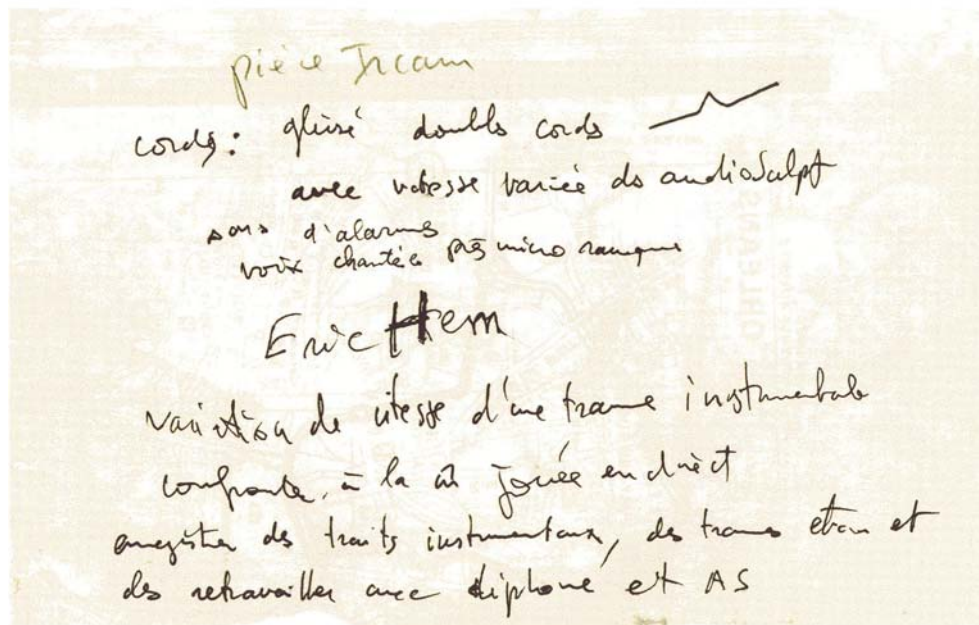 pièce Ircam
cordes: glissé doubles cordes
avec vitesse variée ds audioSculpt
sons d'alarmes
voix chantée près micro
Eric
variation de vitesse d'une trame instrumentale
confronter à la m̂ jouée en direct
enregistrer des traits instrumentaux, des trames et
des retravailler avec diphone et AS
ORLEANS